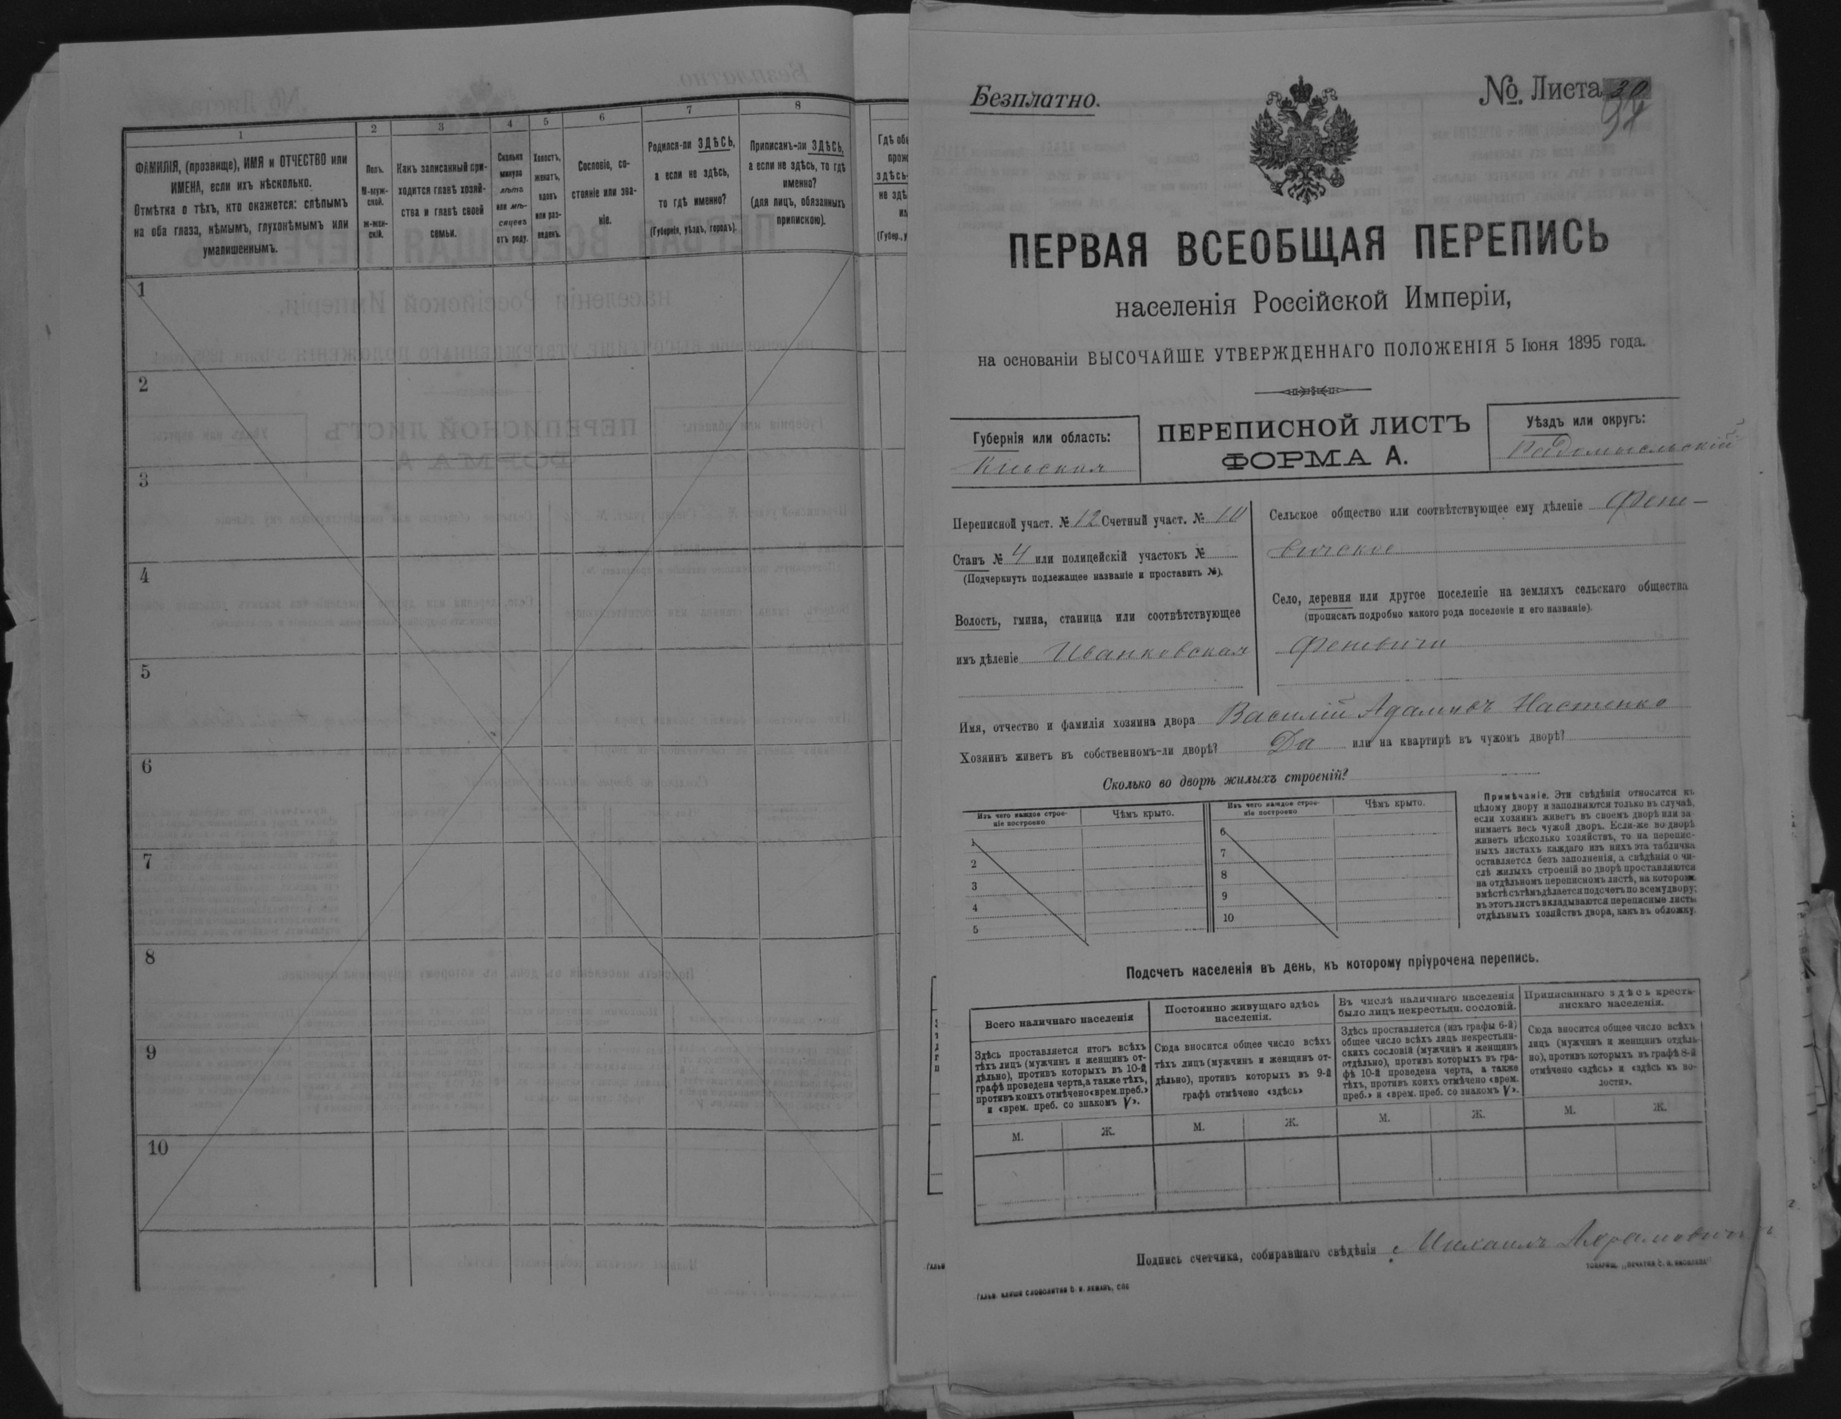 1
2
3
4
5
6
7
8
ФАМИЛІЯ, (прозвище), ИМЯ и ОТЧЕСТВО или
ИМЕНА, если ихъ нѣсколько.
Отмѣтка о тѣхъ, кто окажется: слѣпымъ
на оба глаза, нѣмымъ, глухонѣмымъ или
умалишеннымъ.
Полъ.
М-муж-
ской.
ж-жен-
скій.
Какъ записанный при-
ходится главѣ хозяй-
ства и главѣ своей
семьи.
Сколько
минуло
лѣтъ
или мѣ-
сяцевъ
отъ роду.
Холостъ,
женатъ,
вдовъ
или раз-
веденъ.
Сословіе, со-
стояніе или зва-
ніе.
Родился-ли ЗДѢСЬ,
а если не здѣсь,
то гдѣ именно?
(Губернія, уѣздъ, городъ).
Приписанъ-ли ЗДѢСЬ,
а если не здѣсь, то гдѣ
именно?
(для лицъ, обязанныхъ
припискою).
1
2
3
4
5
6
7
8
9
10
Безплатно.
№ Листа 30
ПЕРВАЯ ВСЕОБЩАЯ ПЕРЕПИСЬ
населенія Россійской Имперіи,
на основаніи ВЫСОЧАЙШЕ УТВЕРЖДЕННАГО ПОЛОЖЕНІЯ 5 Іюня 1895 года.
Губернія или область:
Кіевская
ПЕРЕПИСНОЙ ЛИСТЪ
ФОРМА А.
Уѣздъ или округъ:
Радомысльскій
Переписной участ. № 12 Счетный участ. № 10
Станъ № 4 или полицейскій участокъ №
(Подчеркнуть подлежащее названіе и проставить №).
Волость, гмина, станица или соотвѣтствующее
имъ дѣленіе Иванковская
Сельское общество или соотвѣтствующее ему дѣленіе Фене-
вичское
Село, деревня или другое поселеніе на земляхъ сельскаго общества
(прописать подробно какого рода поселеніе и его названіе).
Феневичи
Имя, отчество и фамилія хозяина двора Василій Адамовъ Настенко
Хозяинъ живетъ въ собственномъ-ли дворѣ? Да или на квартирѣ въ чужомъ дворѣ?
Сколько во дворѣ жилыхъ строеній?
Изъ чего каждое строе-
ніе построено
Чѣмъ крыто.
Изъ чего каждое строе-
ніе построено
Чѣмъ крыто.
1
2
3
4
5
6
7
8
9
10
Примѣчаніе. Эти свѣдѣнія относятся къ
цѣлому двору и заполняются только въ случаѣ,
если хозяинъ живетъ въ своемъ дворѣ или за-
нимаетъ весь чужой дворъ. Если-же во дворѣ
живетъ нѣсколько хозяйствъ, то на перепис-
ныхъ листахъ каждаго изъ нихъ эта табличка
оставляется безъ заполненія, а свѣдѣнія о чи-
слѣ жилыхъ строеній во дворѣ проставляются
на отдѣльномъ переписномъ листѣ, на которомъ
вмѣстѣ съ тѣмъ дѣлается подсчетъ по всему двору;
въ этотъ листъ вкладываются переписные листы
отдѣльныхъ хозяйствъ двора, какъ въ обложку.
Подсчетъ населенія въ день, къ которому пріурочена перепись.
Всего наличнаго населенія
Постоянно живущаго здѣсь
населенія.
Въ числѣ наличнаго населенія
было лицъ некрестьян. сословій.
Приписаннаго здѣсь кресть-
янскаго населенія.
Здѣсь проставляется итогъ всѣхъ
тѣхъ лицъ (мужчинъ и женщинъ от-
дѣльно), противъ которыхъ въ 10-й
графѣ проведена черта, а также тѣхъ,
противъ коихъ отмѣчено «врем. преб.»
и «врем. преб. со знакомъ V».
Сюда вносится общее число всѣхъ
тѣхъ лицъ (мужчинъ и женщинъ от-
дѣльно), противъ которыхъ въ 9-й
графѣ отмѣчено «здѣсь»
Здѣсь проставляется (изъ графы 6-й)
общее число всѣхъ лицъ некрестьян-
скихъ сословій (мужчинъ и женщинъ
отдѣльно), противъ которыхъ въ гра-
фѣ 10-й проведена черта, а также
тѣхъ, противъ коихъ отмѣчено «врем.
преб.» и «врем. преб. со знакомъ V».
Сюда вносится общее число всѣхъ
лицъ (мужчинъ и женщинъ отдѣль-
но), противъ которыхъ въ графѣ 8-й
отмѣчено «здѣсь» и «здѣсь къ во-
лости».
М.
Ж.
М.
Ж.
М.
Ж.
М.
Ж.
Подпись счетчика, собиравшаго свѣдѣнія Михаилъ Абрамовичъ